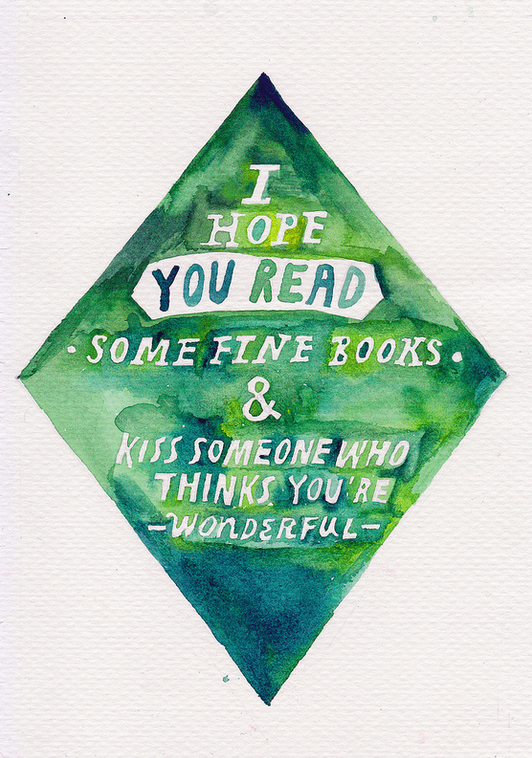 I
HOPE
YOU READ
· SOME FINE BOOKS ·
&
KISS SOMEONE WHO
THINKS YOU'RE
-WONDERFUL-